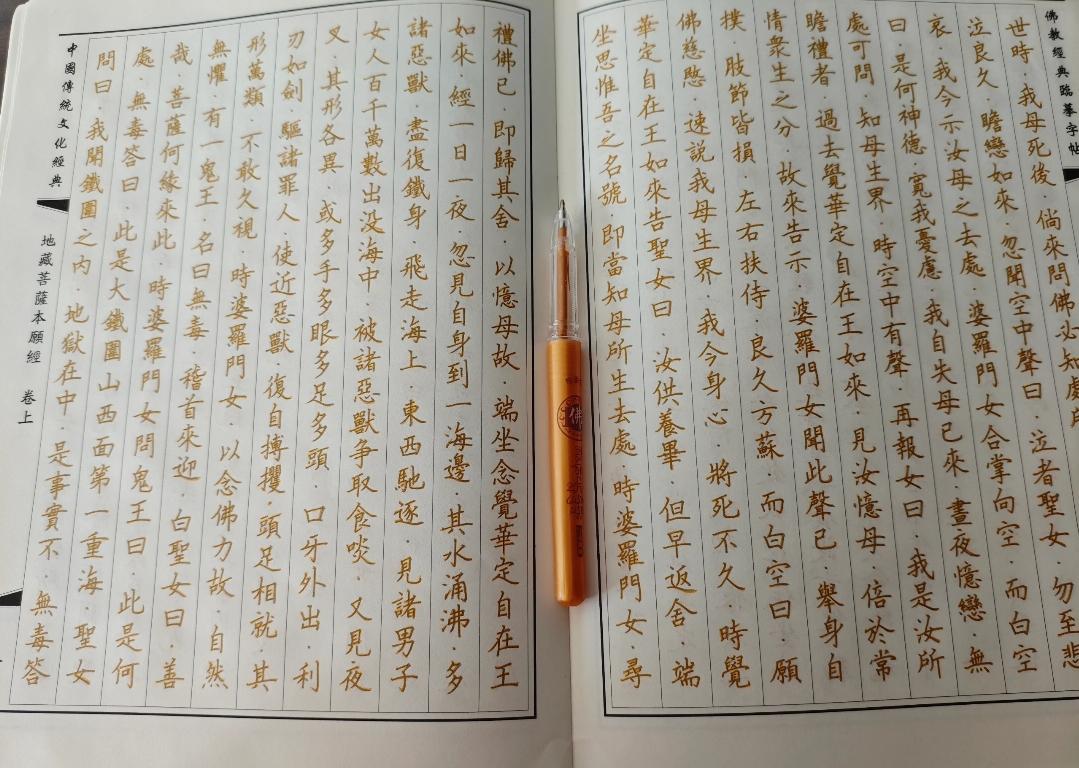 佛教經典臨摹字帖
世時·我母死後·倘來問佛必知處所
泣良久·瞻戀如來·忽聞空中聲曰·泣者聖女·勿至悲
哀·我今示汝母之去處·婆羅門女合掌向空·而白空
曰·是何神德·寬我憂慮·我自失母已來·晝夜憶戀·無
處可問·知母生界·時空中有聲·再報女曰·我是汝所
瞻禮者·過去覺華定自在王如來·見汝憶母·倍於常
情衆生之分·故來告示·婆羅門女聞此聲已·舉身自
撲·肢節皆損·左右扶侍·良久方蘇·而白空曰·願
佛慈愍·速説我母生界·我今身心·將死不久·時覺
華定自在王如來告聖女曰·汝供養畢·但早返舍·端
坐思惟吾之名號·即當知母所生去處·時婆羅門女·尋
禮佛已·即歸其舍·以憶母故·端坐念覺華定自在王
如來·經一日一夜·忽見自身到一海邊·其水涌沸·多
諸惡獸·盡復鐵身·飛走海上·東西馳逐·見諸男子
女人百千萬數出没海中·被諸惡獸争取食啖·又見夜
叉·其形各異·或多手多眼多足多頭·口牙外出·利
刃如劍·驅諸罪人·使近惡獸·復自搏攫·頭足相就·其
形萬類·不敢久視·時婆羅門女·以念佛力故·自然
無懼·有一鬼王·名曰無毒·稽首來迎·白聖女曰·善
哉·菩薩何緣來此·時婆羅門女問鬼王曰·此是何
處·無毒答曰·此是大鐵圍山西面第一重海·聖女
問曰·我聞鐵圍之内·地獄在中·是事實不·無毒答
中國傳統文化經典
地藏菩薩本願經 卷上
佛